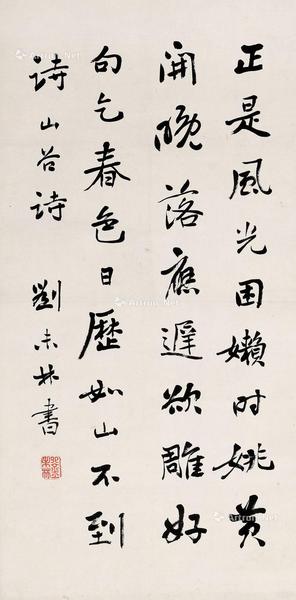 正是風光困嬾时姚黄
開晚落應遲欲雕好
句乞春色日歷如山不到
詩山谷詩 劉未林書